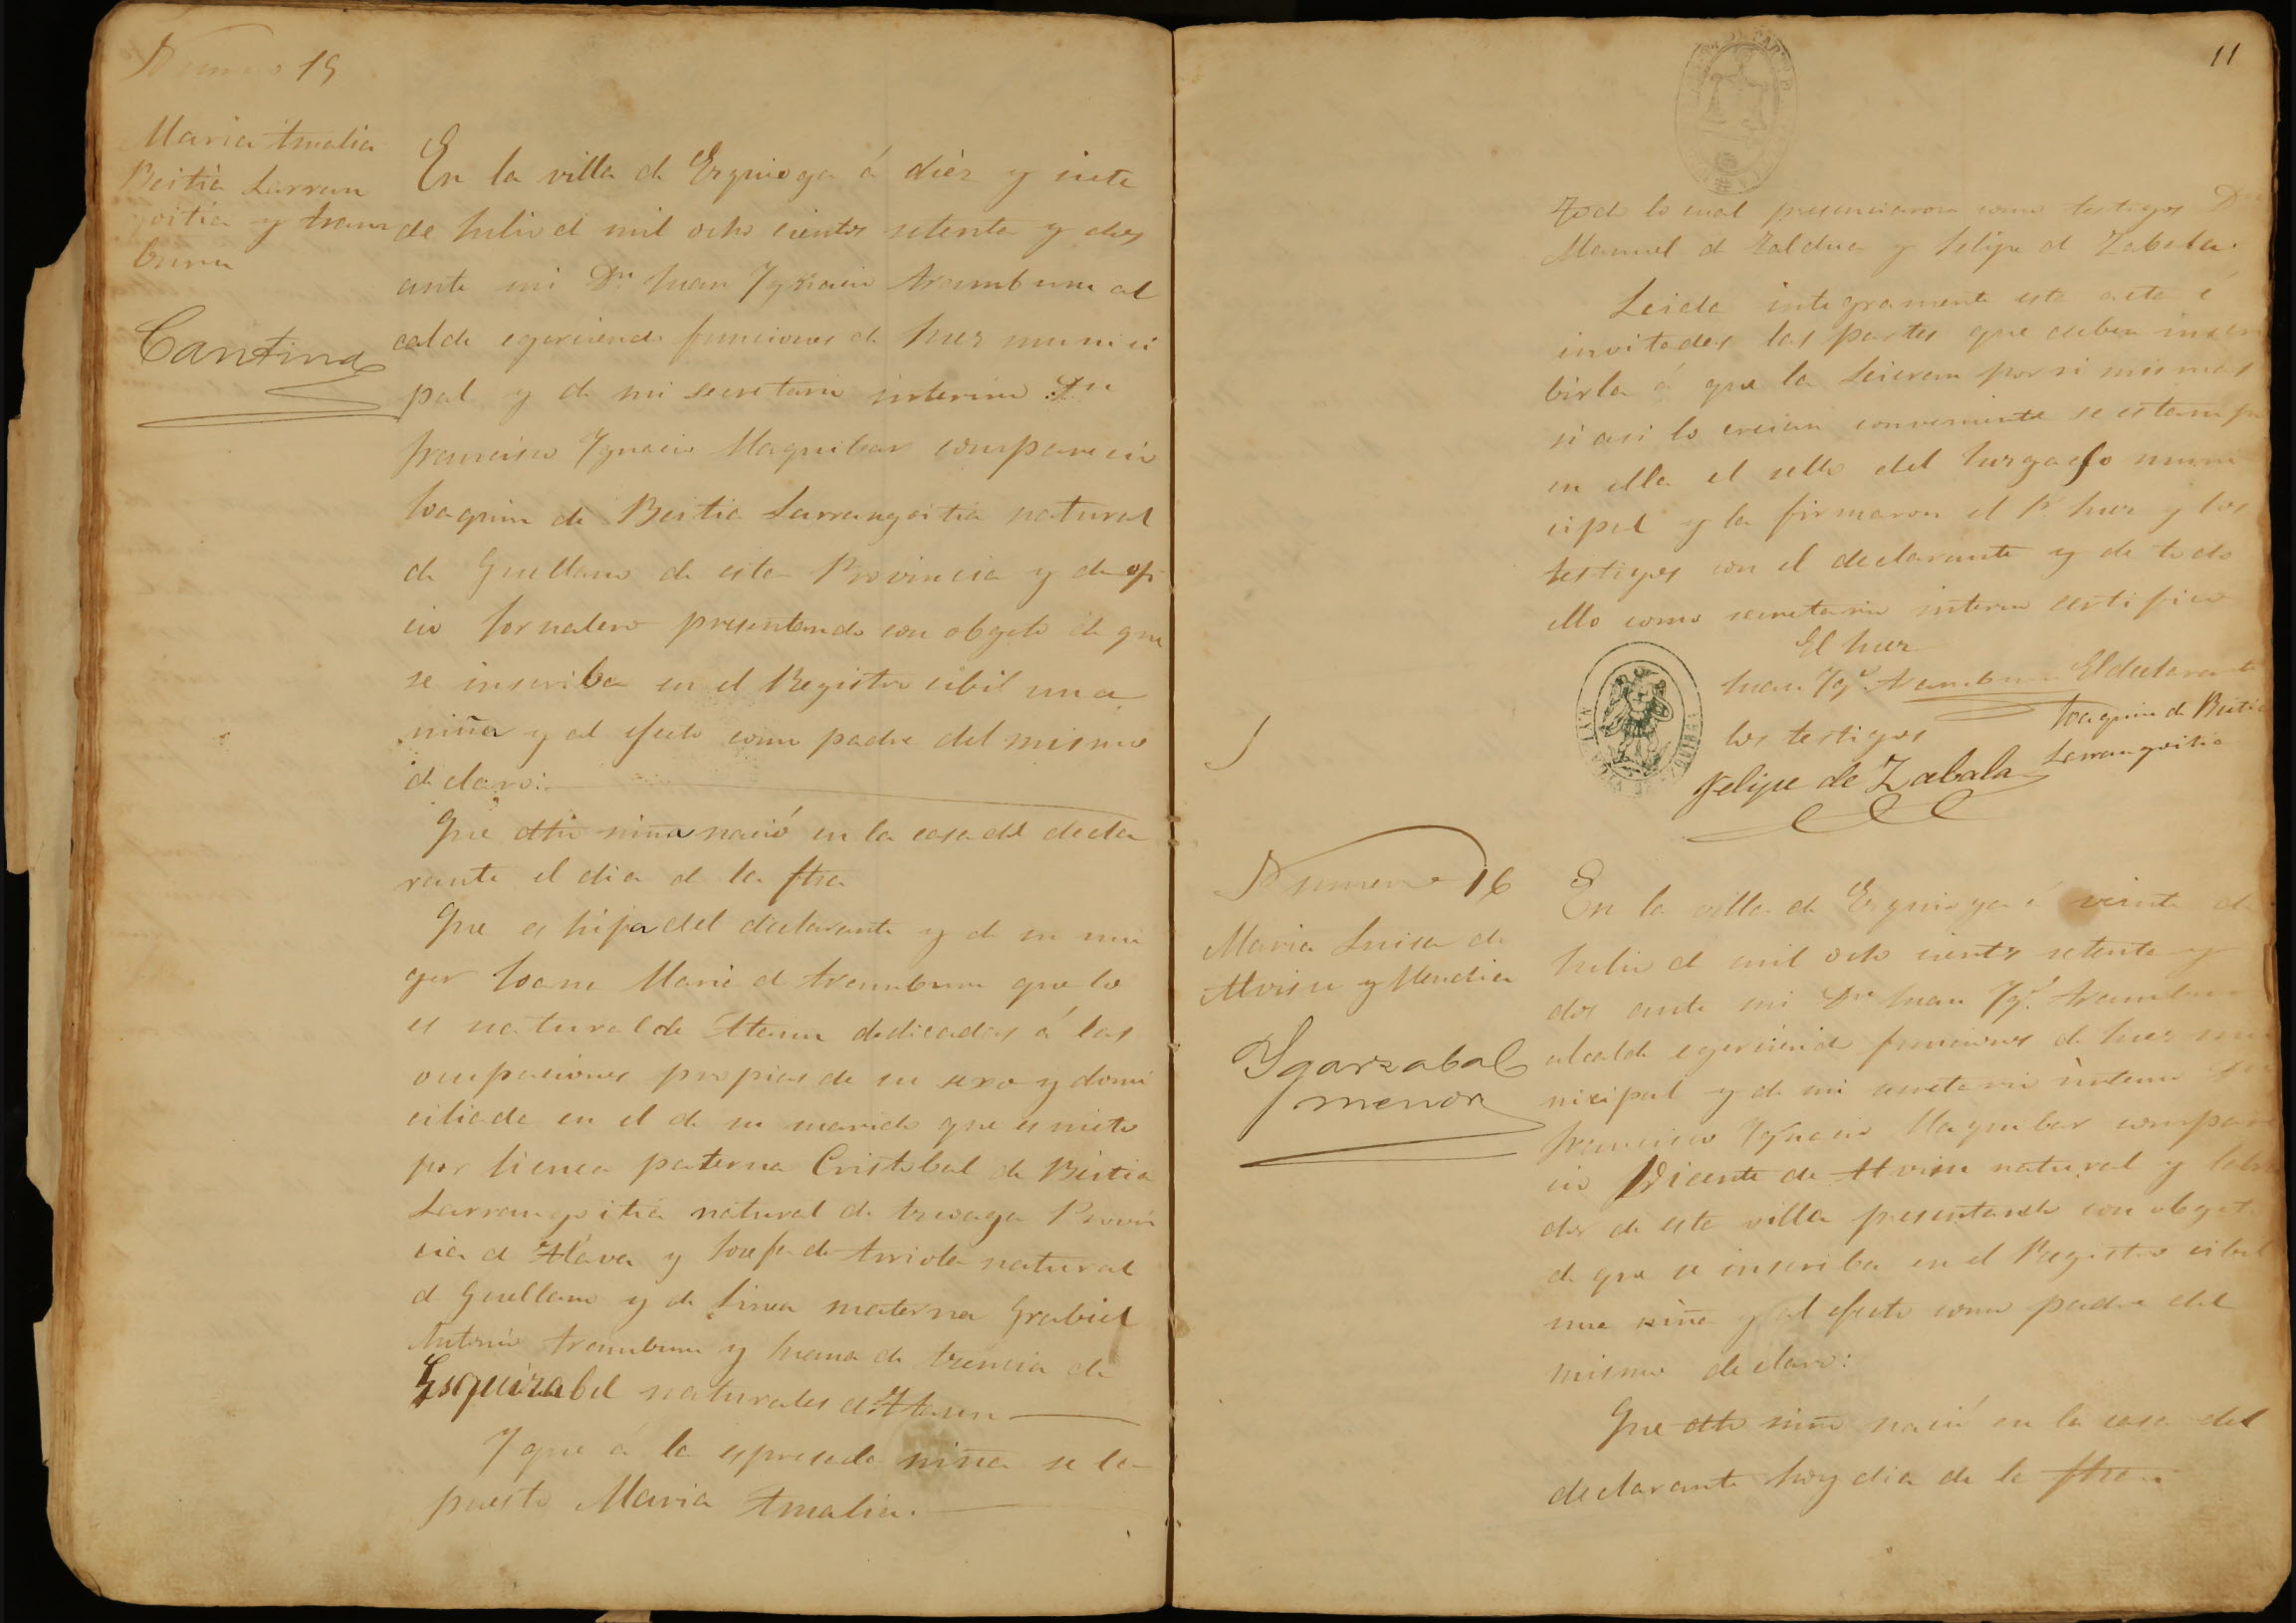 Numero 15
Maria Amalia
Beitia Larran
goitia y Aram
buru
Cantina
En la villa de Ezquioga á diez y siete
de Julio de mil ocho cientos setenta y dos
ante mi Dn Juan Ygnacio Aramburu al
calde egerciendo funciones de Juez munici
pal y de mi secretario interino Dn
Francisco Ygnacio Maquibar comparecio
Joaquin de Beitia Larrangoitia natural
de Guellano de esta Provincia y de ofi
cio Jornalero presentando con obgeto de que
se inscriba en el Registro cibil una
niña y al efecto como padre del mismo
declaro:
Que dha niña nació en la casa del decla
rante el dia de la fha
Que es hija del declarante y de su mu
ger Joana Maria de Aramburu que lo
es natural de Ataun dedicadas á las
ocupaciones propias de su sexo y domi
ciliada en el de su marido que es nieto
por lienea paterna Cristobal de Beitia
Larrangoitia natural de Provin
cia de Alava y Josefa de Arriola natural
de Guellano y de linea materna Grabiel
Antonio Aramburu y Juana de de
Ezquizabel naturales de Ataun
Y que á la espresada niña se le
puesto Maria Amalia.
11
Todo lo cual presenciaron como testigos Dn
Manuel de Zaldua y Felipe de Zabala.
Leida integramente esta acta é
invitadas las partes que deben inscri
birla á que la leieran por si mismas
si asi lo creian conveniente se estampa
en ella el sello del Juzgado muni
cipal y la firmaron el Sr Juez y los
testigos con el declarante y de todo
ello como secretario interino certifico
El Juez
Juan Ygo Aramburu El declarante
Joaquin de Beitia
Larrangoitia
los testigos
Felipe de Zabala
Numero 16
Maria Luisa de
Alvisu y Mendia
Ygarzabal
menor
En la villa de Ezquioga á veinte de
Julio de mil ocho cientos setenta y
dos ante mi Dn Juan Ygo Aramburu
alcalde egerciendo funciones de Juez mu
nicipal y de mi secretario interino Dn
Francisco Ygnacio Maquibar compare
cio Vicente de Alvisu natural y labra
dor de esta villa presentando con obgeto
de que se inscriba en el Registro cibil
una niña y al efecto como padre del
mismo declaro:
Que dha niña nació en la casa del
declarante hoy dia de la fha